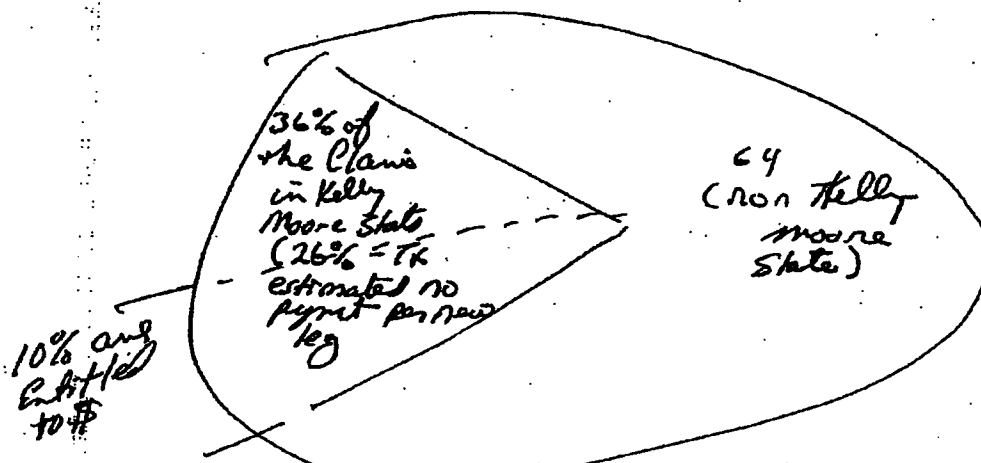 36% of
the Claims
in Kelly
Moore States
(26% = TX
estimated no
pymt per new
leg
64
(non Kelly
Moore
States)
10% are
Entitled
to $